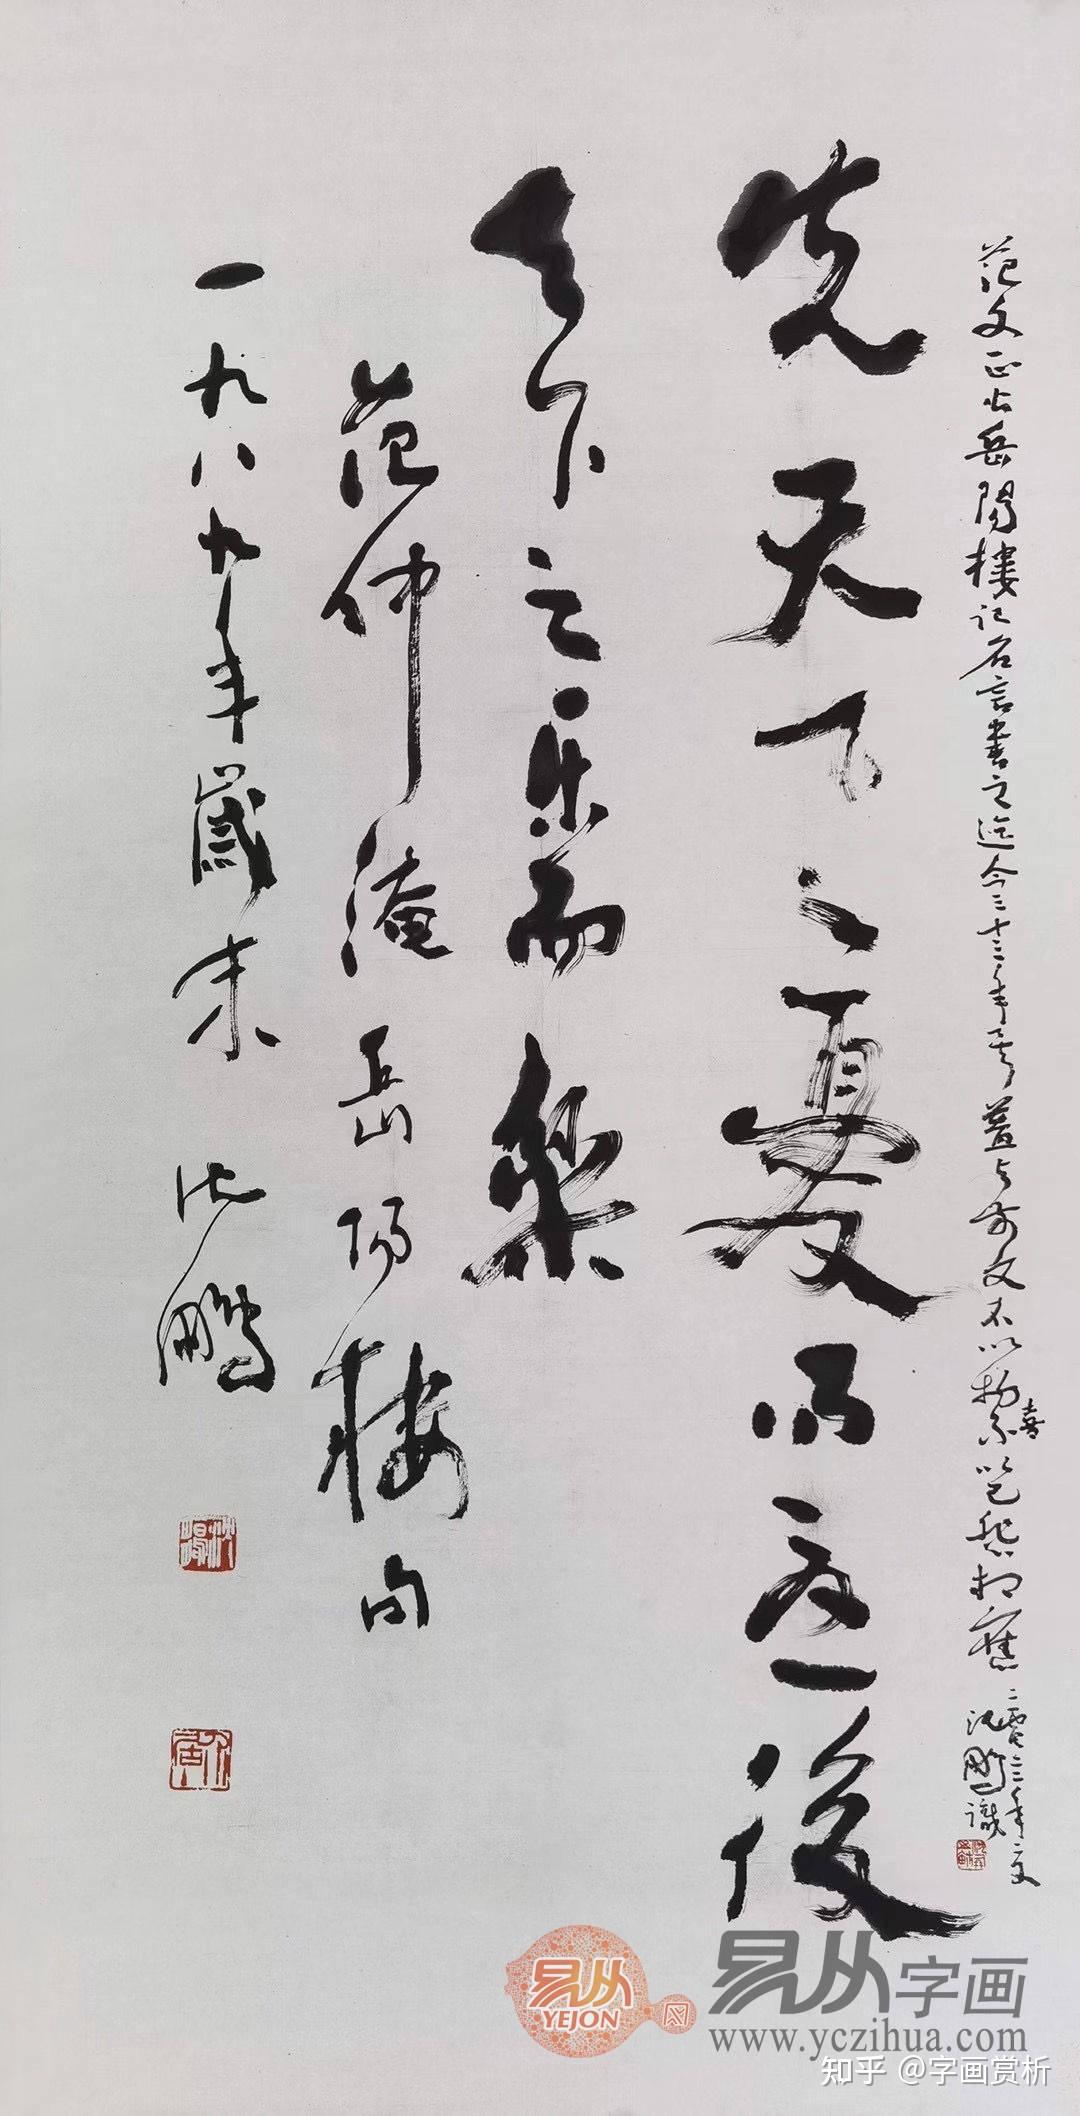 范文正公岳陽樓記名言書之迄今三十三年矣蓋与前文不以物喜不以己悲相應
二零二二年夏
沈鵬識
先天下之憂而憂後
天下之乐而樂
范仲淹岳陽樓句
一九八九年歲末 沈鵬
易从
YEJON
网
易从字画
www.yczihua.com
知乎 @字画赏析